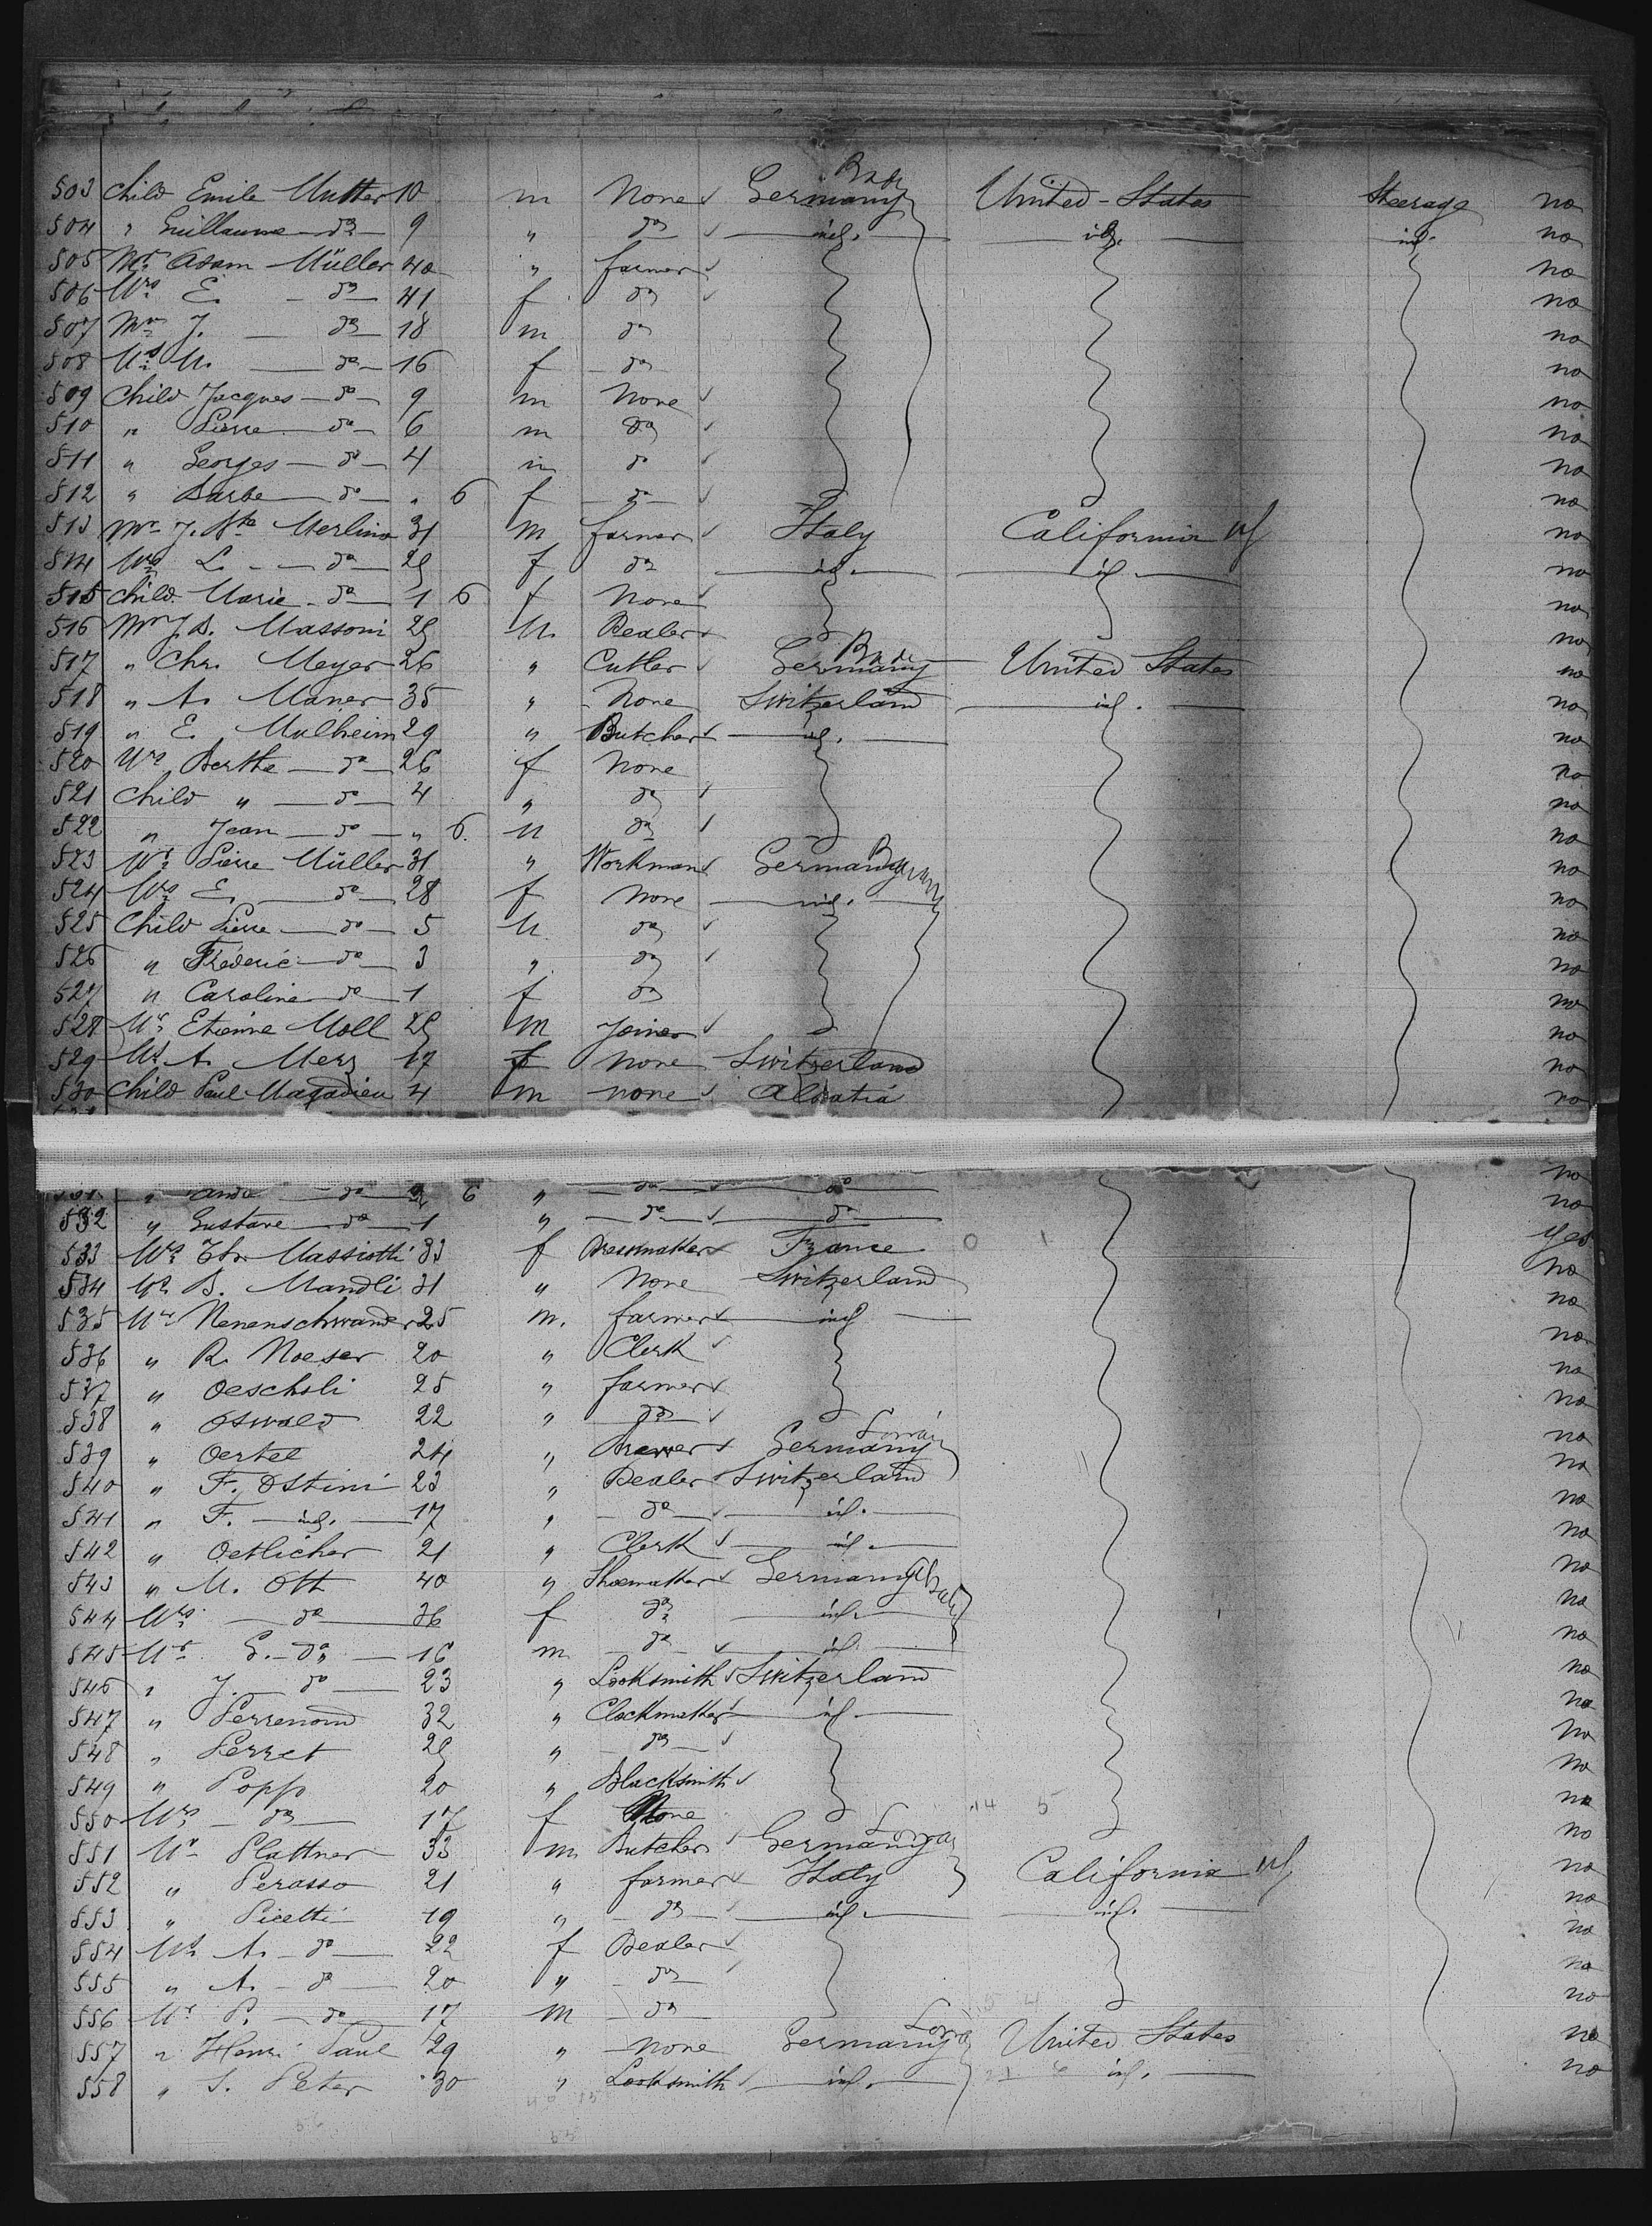 503 Child Emile Mutter 10 m None Germany Bade United-States Steerage no
504 " Guillaume do 9 " do id. id. id. no
505 Mr Adam Müller 40 " farmer no
506 Mrs E. do 41 f do no
507 Mr J. do 18 m do no
508 Ms M. do 16 f do no
509 Child Jacques do 9 m None no
510 " Pierre do 6 m do no
511 " Georges do 4 m do no
512 " Barbe do " 6 f do no
513 Mr J. Bte Merlino 31 m farmer Italy California no
514 Mrs L. do 25 f do id. id. no
515 Child Marie do 1 6 f None no
516 Mr J. B. Massoni 25 M. Dealer no
517 " Chr. Meyer 26 " Cutler Germany Bade United States no
518 " A. Maner 35 " None Switzerland id. no
519 " E. Mulheim 29 " Butcher id. no
520 Mrs Berthe do 26 f None no
521 Child " do 4 " do no
522 " Jean do " 6. M do no
523 Mr Pierre Müller 31 " Workman Germany no
524 Mrs E. do 28 f None id. no
525 Child Pierre do 5 M. do no
526 " Fréderic do 3 " do no
527 " Caroline do 1 f do no
528 Mr Etienne Moll 25 m Joiner no
529 Ms A. Merz 17 f None Switzerland no
530 Child Paul Magadieu 4 m none Alsatia no
" do 6 " do do no
532 " Gustave do 1 " do do no
533 Mrs Massiotti 33 f Dressmaker France 0 1 Yes
534 B. Mandli 31 " None Switzerland no
535 Mr Nenenschwander 25 m. farmer id no
536 " R. Noeser 20 " Clerk no
537 " Oeschsli 25 " farmer no
538 " Oswald 22 " do no
539 " Oertel 24 " Brewer Germany no
540 " F. Ostini 23 " Dealer Switzerland no
541 " F. id. 17 " do id. no
542 " Oetlicher 21 " Clerk id. no
543 " M. Ott 40 " Shoemaker Germany no
544 Mrs do 36 f do id. no
545 Mr G. do 16 m do id. no
546 " J. do 23 " Locksmith Switzerland no
547 " Perrenoud 32 " Clockmaker id. no
548 " Perret 25 " do no
549 " Popp 20 " Blacksmith no
550 Mrs do 17 f None 14 5 no
551 Mr Plattner 33 m Butcher Germany no
552 " Perasso 21 " farmer Italy California no
553 " Picetti 19 " do id. id. no
554 Ms A. do 22 f Dealer no
555 " A. do 20 " do no
556 Mr P. do 17 m do no
557 " Henri Paul 29 " none Germany United States no
558 " S. Peter 30 " Locksmith id. id. no